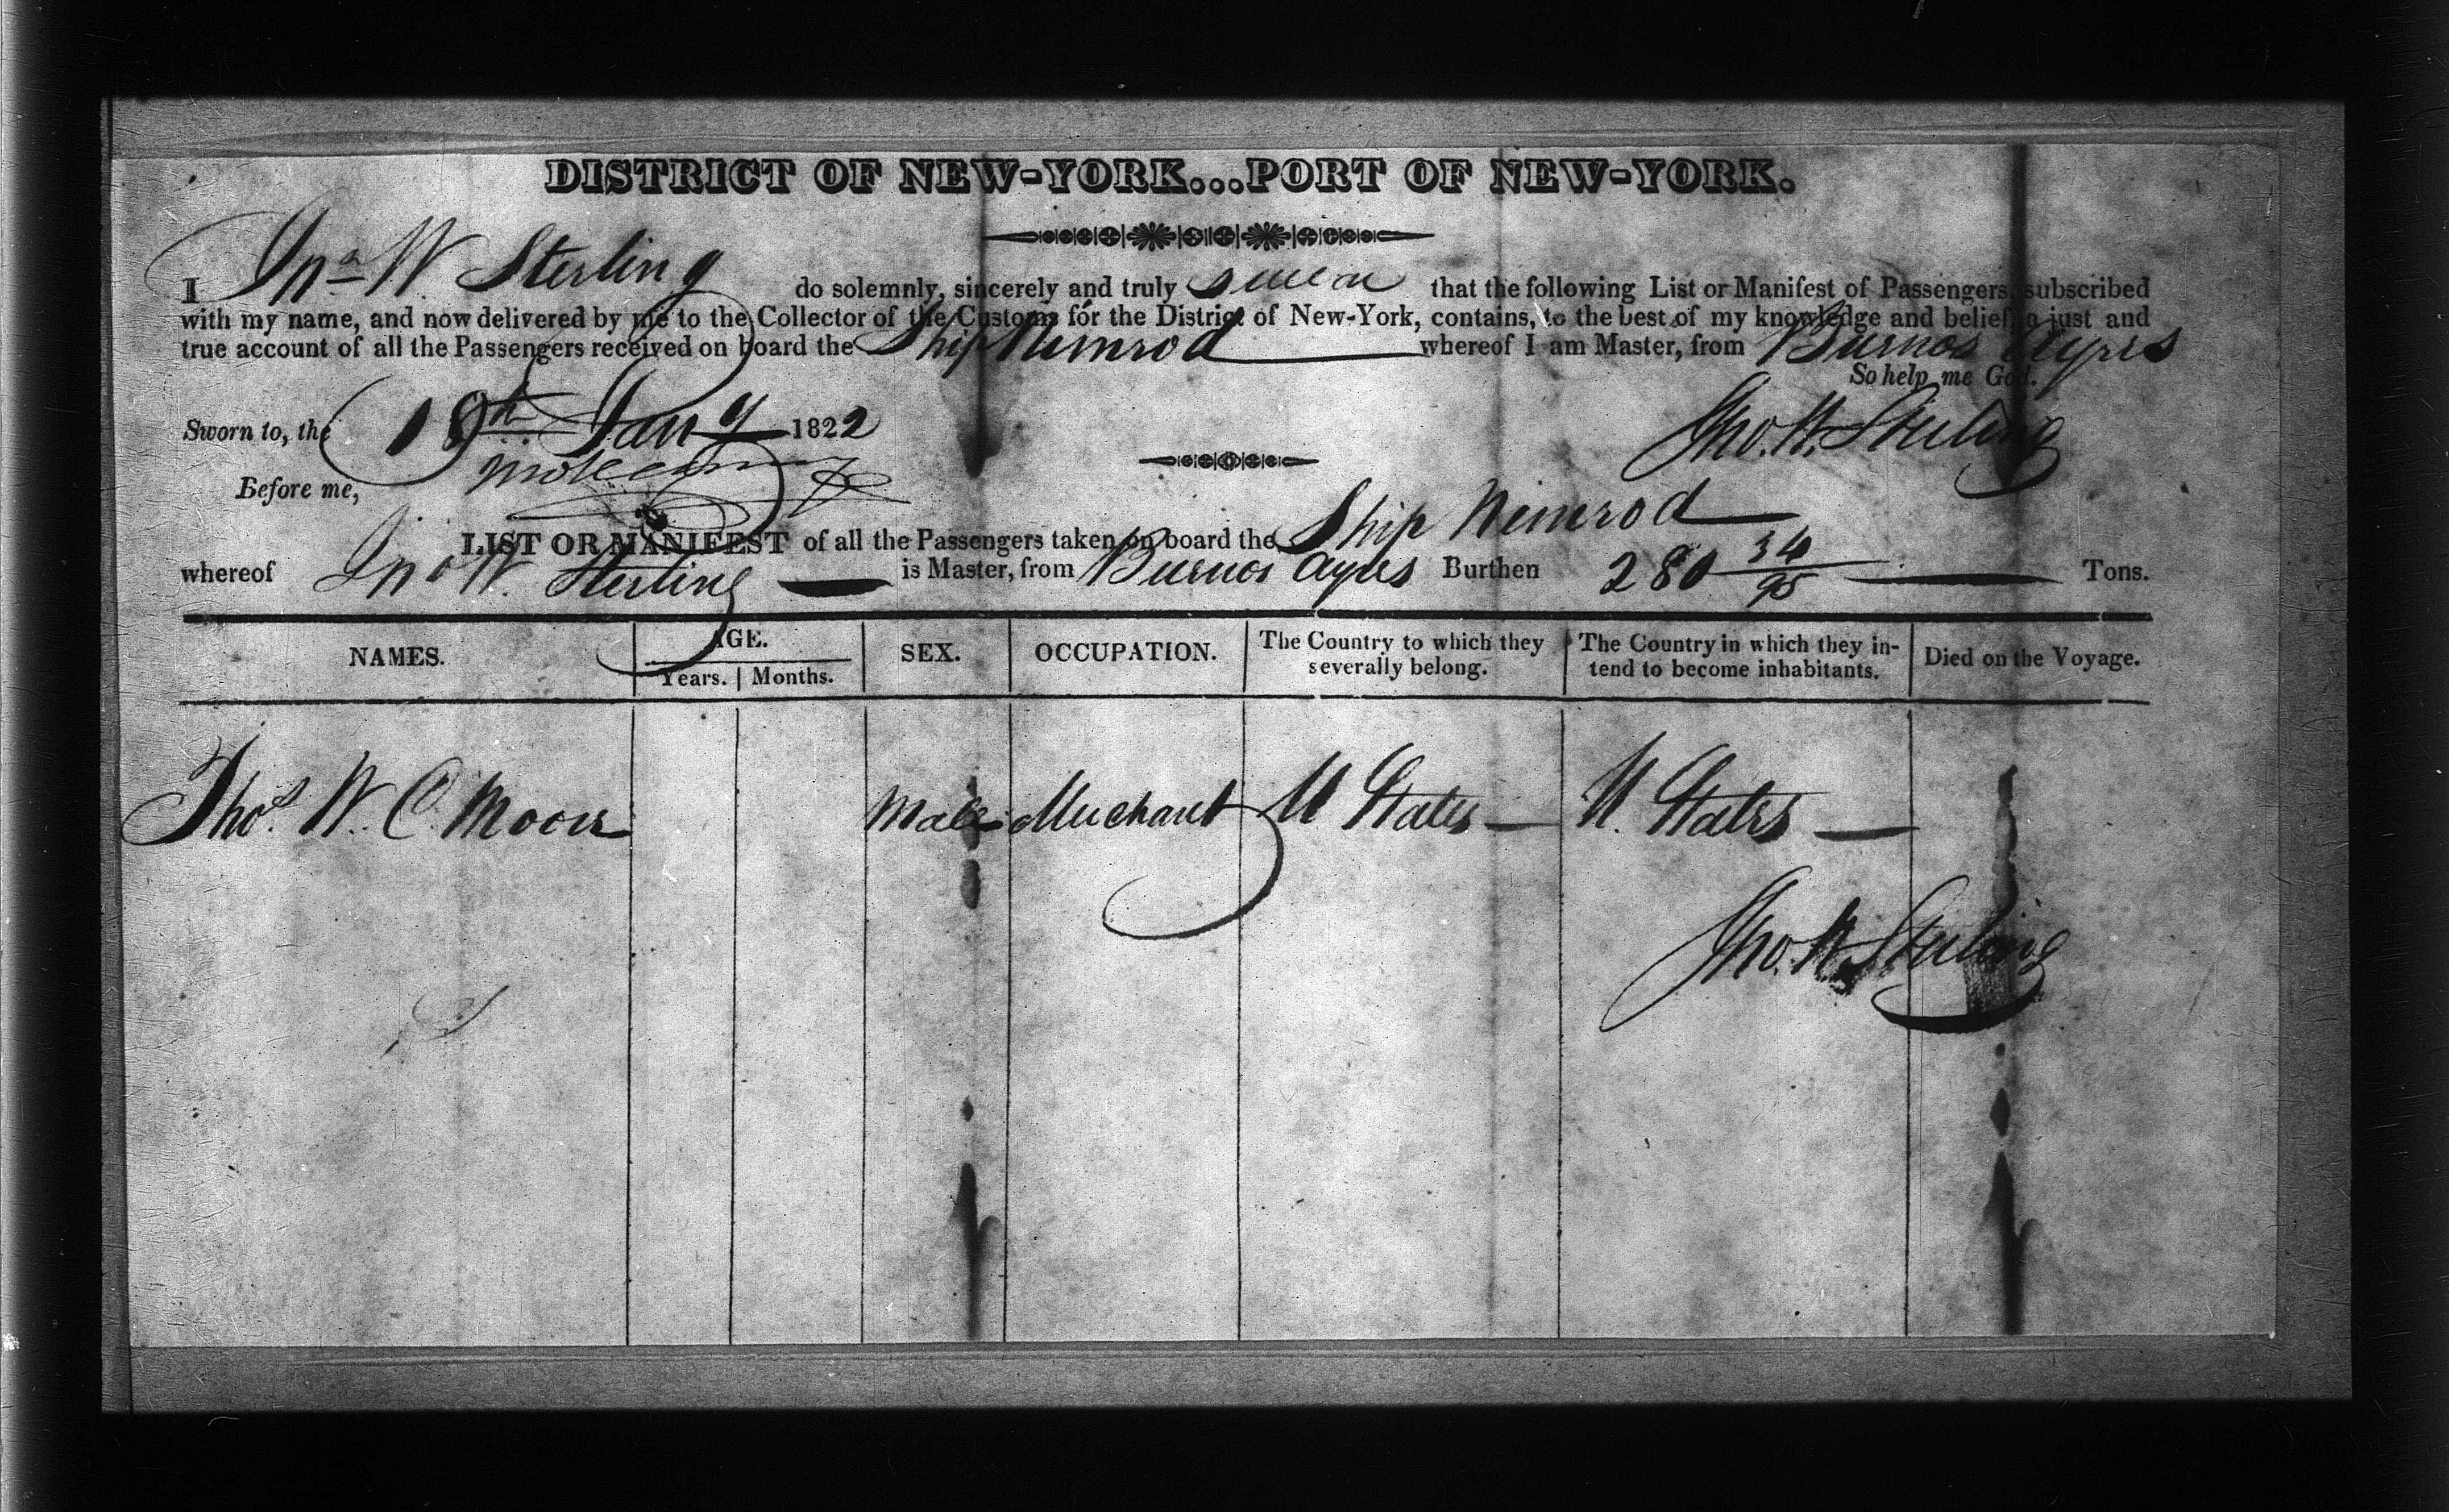 DISTRICT OF NEW-YORK...PORT OF NEW-YORK.
I Jno W Sterling do solemnly, sincerely and truly swear that the following List or Manifest of Passengers, subscribed
with my name, and now delivered by me to the Collector of the Customs for the District of New-York, contains, to the best of my knowledge and belief, a just and
true account of all the Passengers received on board the Ship Nimrod whereof I am Master, from Buenos Ayres
So help me God.
Sworn to, the 18th Jany 1822
Jno. W. Sterling
Before me,
LIST OR MANIFEST of all the Passengers taken on board the Ship Nimrod
whereof Jno W. Sterling is Master, from Buenos Ayres Burthen 280 34/95 Tons.
NAMES. AGE. Years. Months. SEX. OCCUPATION. The Country to which they severally belong. The Country in which they intend to become inhabitants. Died on the Voyage.
Thos. W. C. Moore Male Merchant U States U. States
Jno. W Sterling